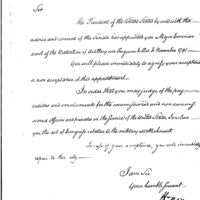 Sir
The President of the United States by and with the
advice and consent of the Senate has appointed you Major Comman-
dant of the Battalion of Artillery vice Ferguson killed 4 November 1791
You will please immediately to signify your acceptance or
non acceptance of this appointment.
In order that you may judge of the pay
rations and emoluments for the commissioned and non commissi-
oned Officers and privates in the service of the United States, I enclose
you the act of Congress relative to the military establishment.
In case of your acceptance, you will immediately
repair to this city
I am Sir
Your humble servant